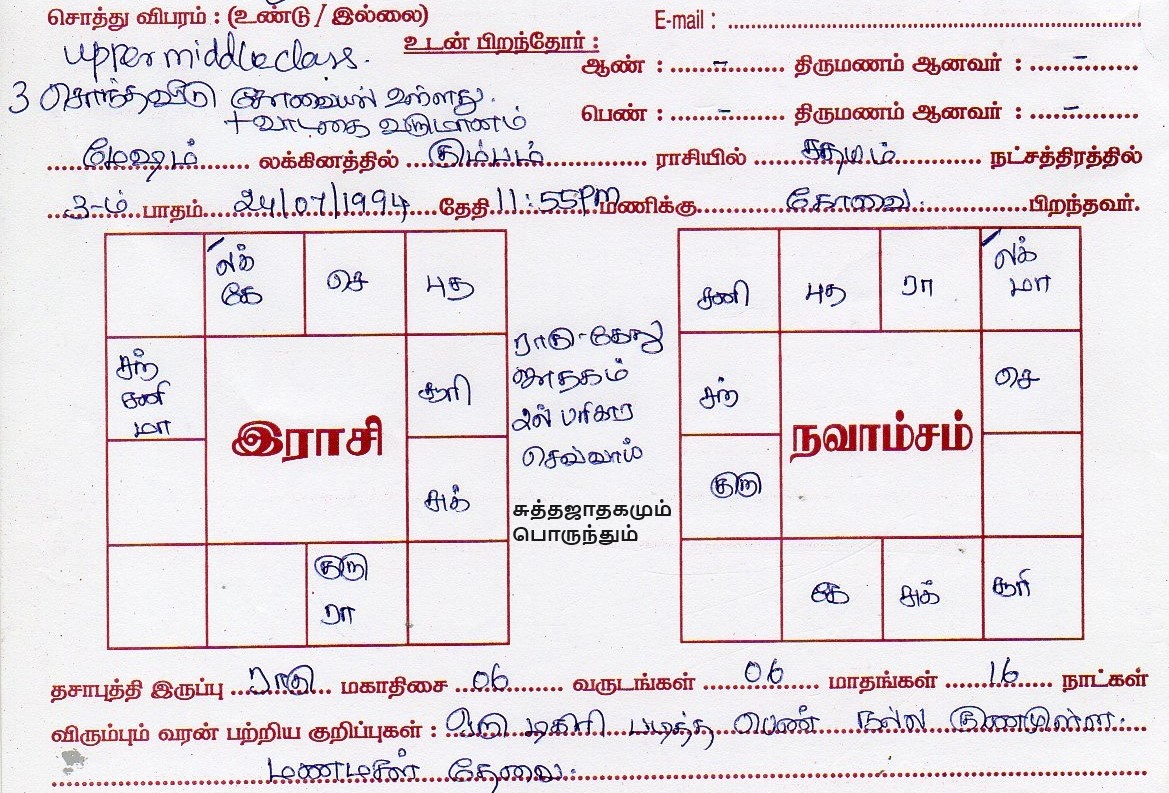 சொத்து விபரம் : (உண்டு / இல்லை) E-mail : 
upper middle class. உடன் பிறந்தோர் :
ஆண் : - திருமணம் ஆனவர் : -
3 சொந்தவீடு கோவையில் உள்ளது.
+ வாடகை வருமானம்
பெண் : - திருமணம் ஆனவர் : -
மேஷம் லக்கினத்தில் கும்பம் ராசியில் சதயம் நட்சத்திரத்தில்
3-ம் பாதம் 24/07/1994 தேதி 11:55pm மணிக்கு கோவை. பிறந்தவர்.
லக் கே
செ
புத
சந் சனி மா
சூரி
சுக்
குரு ரா
இராசி
ராகு-கேது
ஜாதகம்
பரிகார
செவ்வாய்
சுத்தஜாதகமும்
பொருந்தும்
சனி
புத
ரா
லக் மா
சந்
செ
குரு
கே
சுக்
சூரி
நவாம்சம்
தசாபுத்தி இருப்பு ராகு மகாதிசை 06 வருடங்கள் 06 மாதங்கள் 16 நாட்கள்
விரும்பும் வரன் பற்றிய குறிப்புகள் : ஒரு டிகிரி படித்த பெண் நல்ல குணமுள்ள.
மணமகள் தேவை.